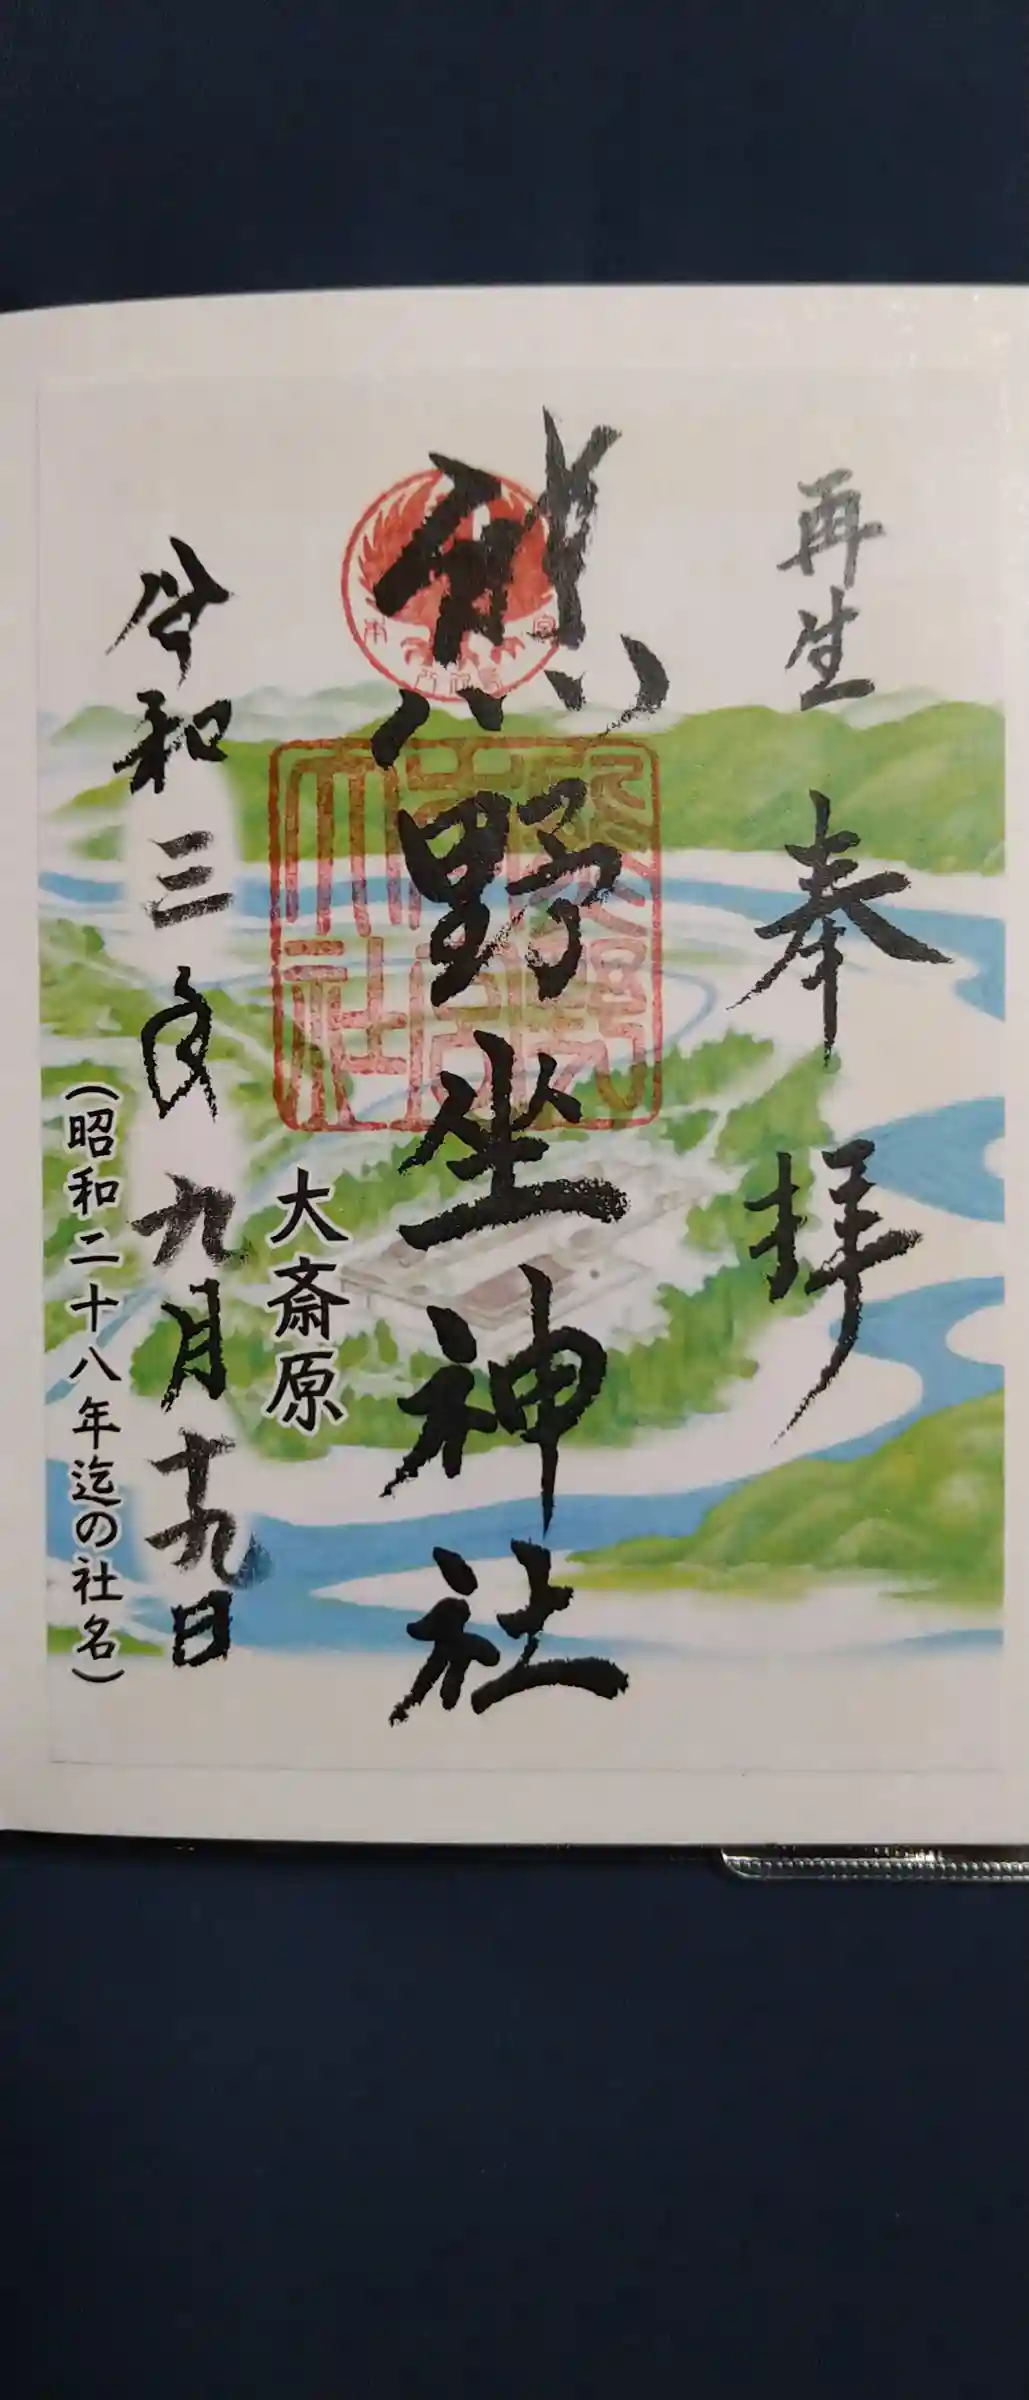 再生
奉拝
熊野坐神社
大斎原
令和三年九月十九日
(昭和二十八年迄の社名)